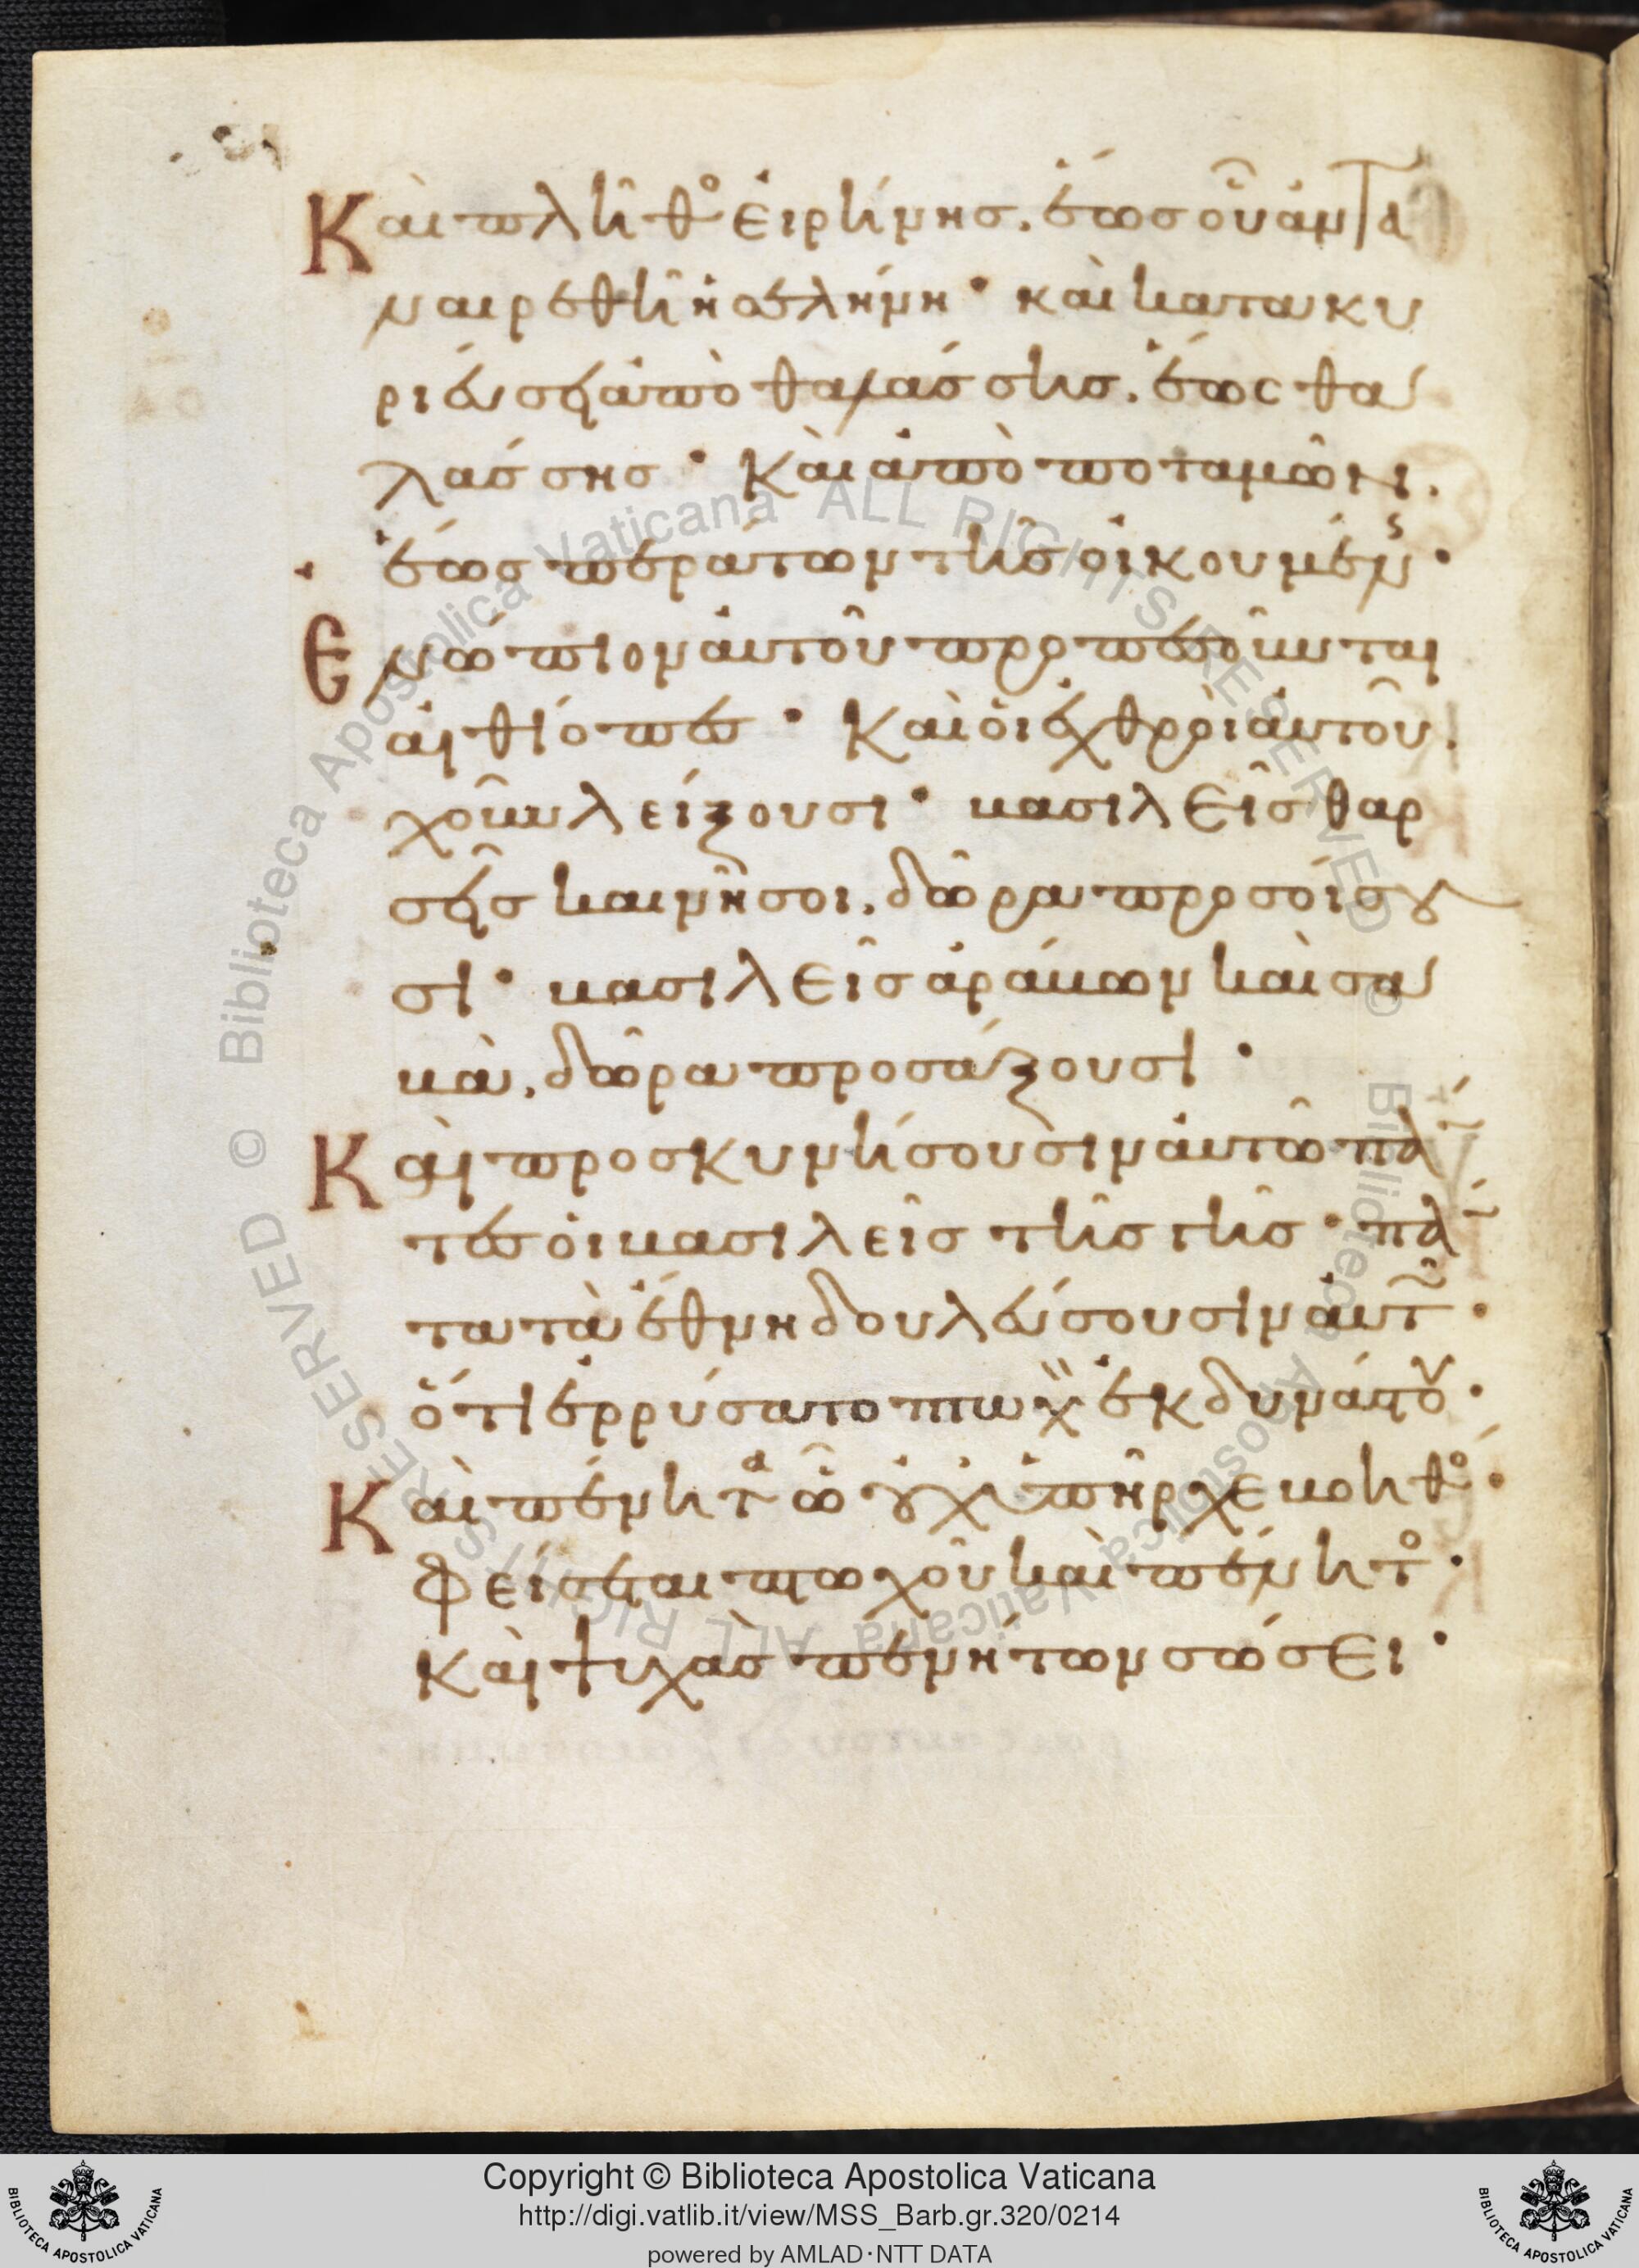 Και πλῆθο εἰρήνης. ἕως οὗ ἀντα
ναιρεθῆ ἡ σελήνη· και κατακυ
ριεύσει ἀπὸ θαλάσσης. ἕως θα
λάσσης· Και ἀπὸ ποταμῶν.
ἕως περάτων τῆς οἰκουμέν·
Ενώπιον ἀυτοῦ προπεσοῦνται
αἰθίοπες· Και ὁι ἐχθροι ἀυτοῦ.
χοῦν λείξουσι· βασιλεῖς θαρ
σεῖς και νῆσοι. δῶρα προσοίσου
σι· βασιλεῖς ἀράβων και σα
βὰ. δῶρα προσάξουσι·
Και προσκυνήσουσιν ἀυτῶ πά
τες ὁι βασιλεῖς τῆς γῆς· πά
τα τὰ ἔθνη δουλεύσουσιν ἀυτ·
ὅτι ἐρρύσατο πτωχ ἐκ δυνάστου·
Και πένητα ὧ ουχ ὑπῆρχε βοηθό·
Φείσεται πτωχοῦ και πένητο·
Και ψυχὰς πενήτων σώσει·
Copyright © Biblioteca Apostolica Vaticana
http://digi.vatlib.it/view/MSS_Barb.gr.320/0214
powered by AMLAD·NTT DATA
BIBLIOTECA APOSTOLICA VATICANA
BIBLIOTECA APOSTOLICA VATICANA